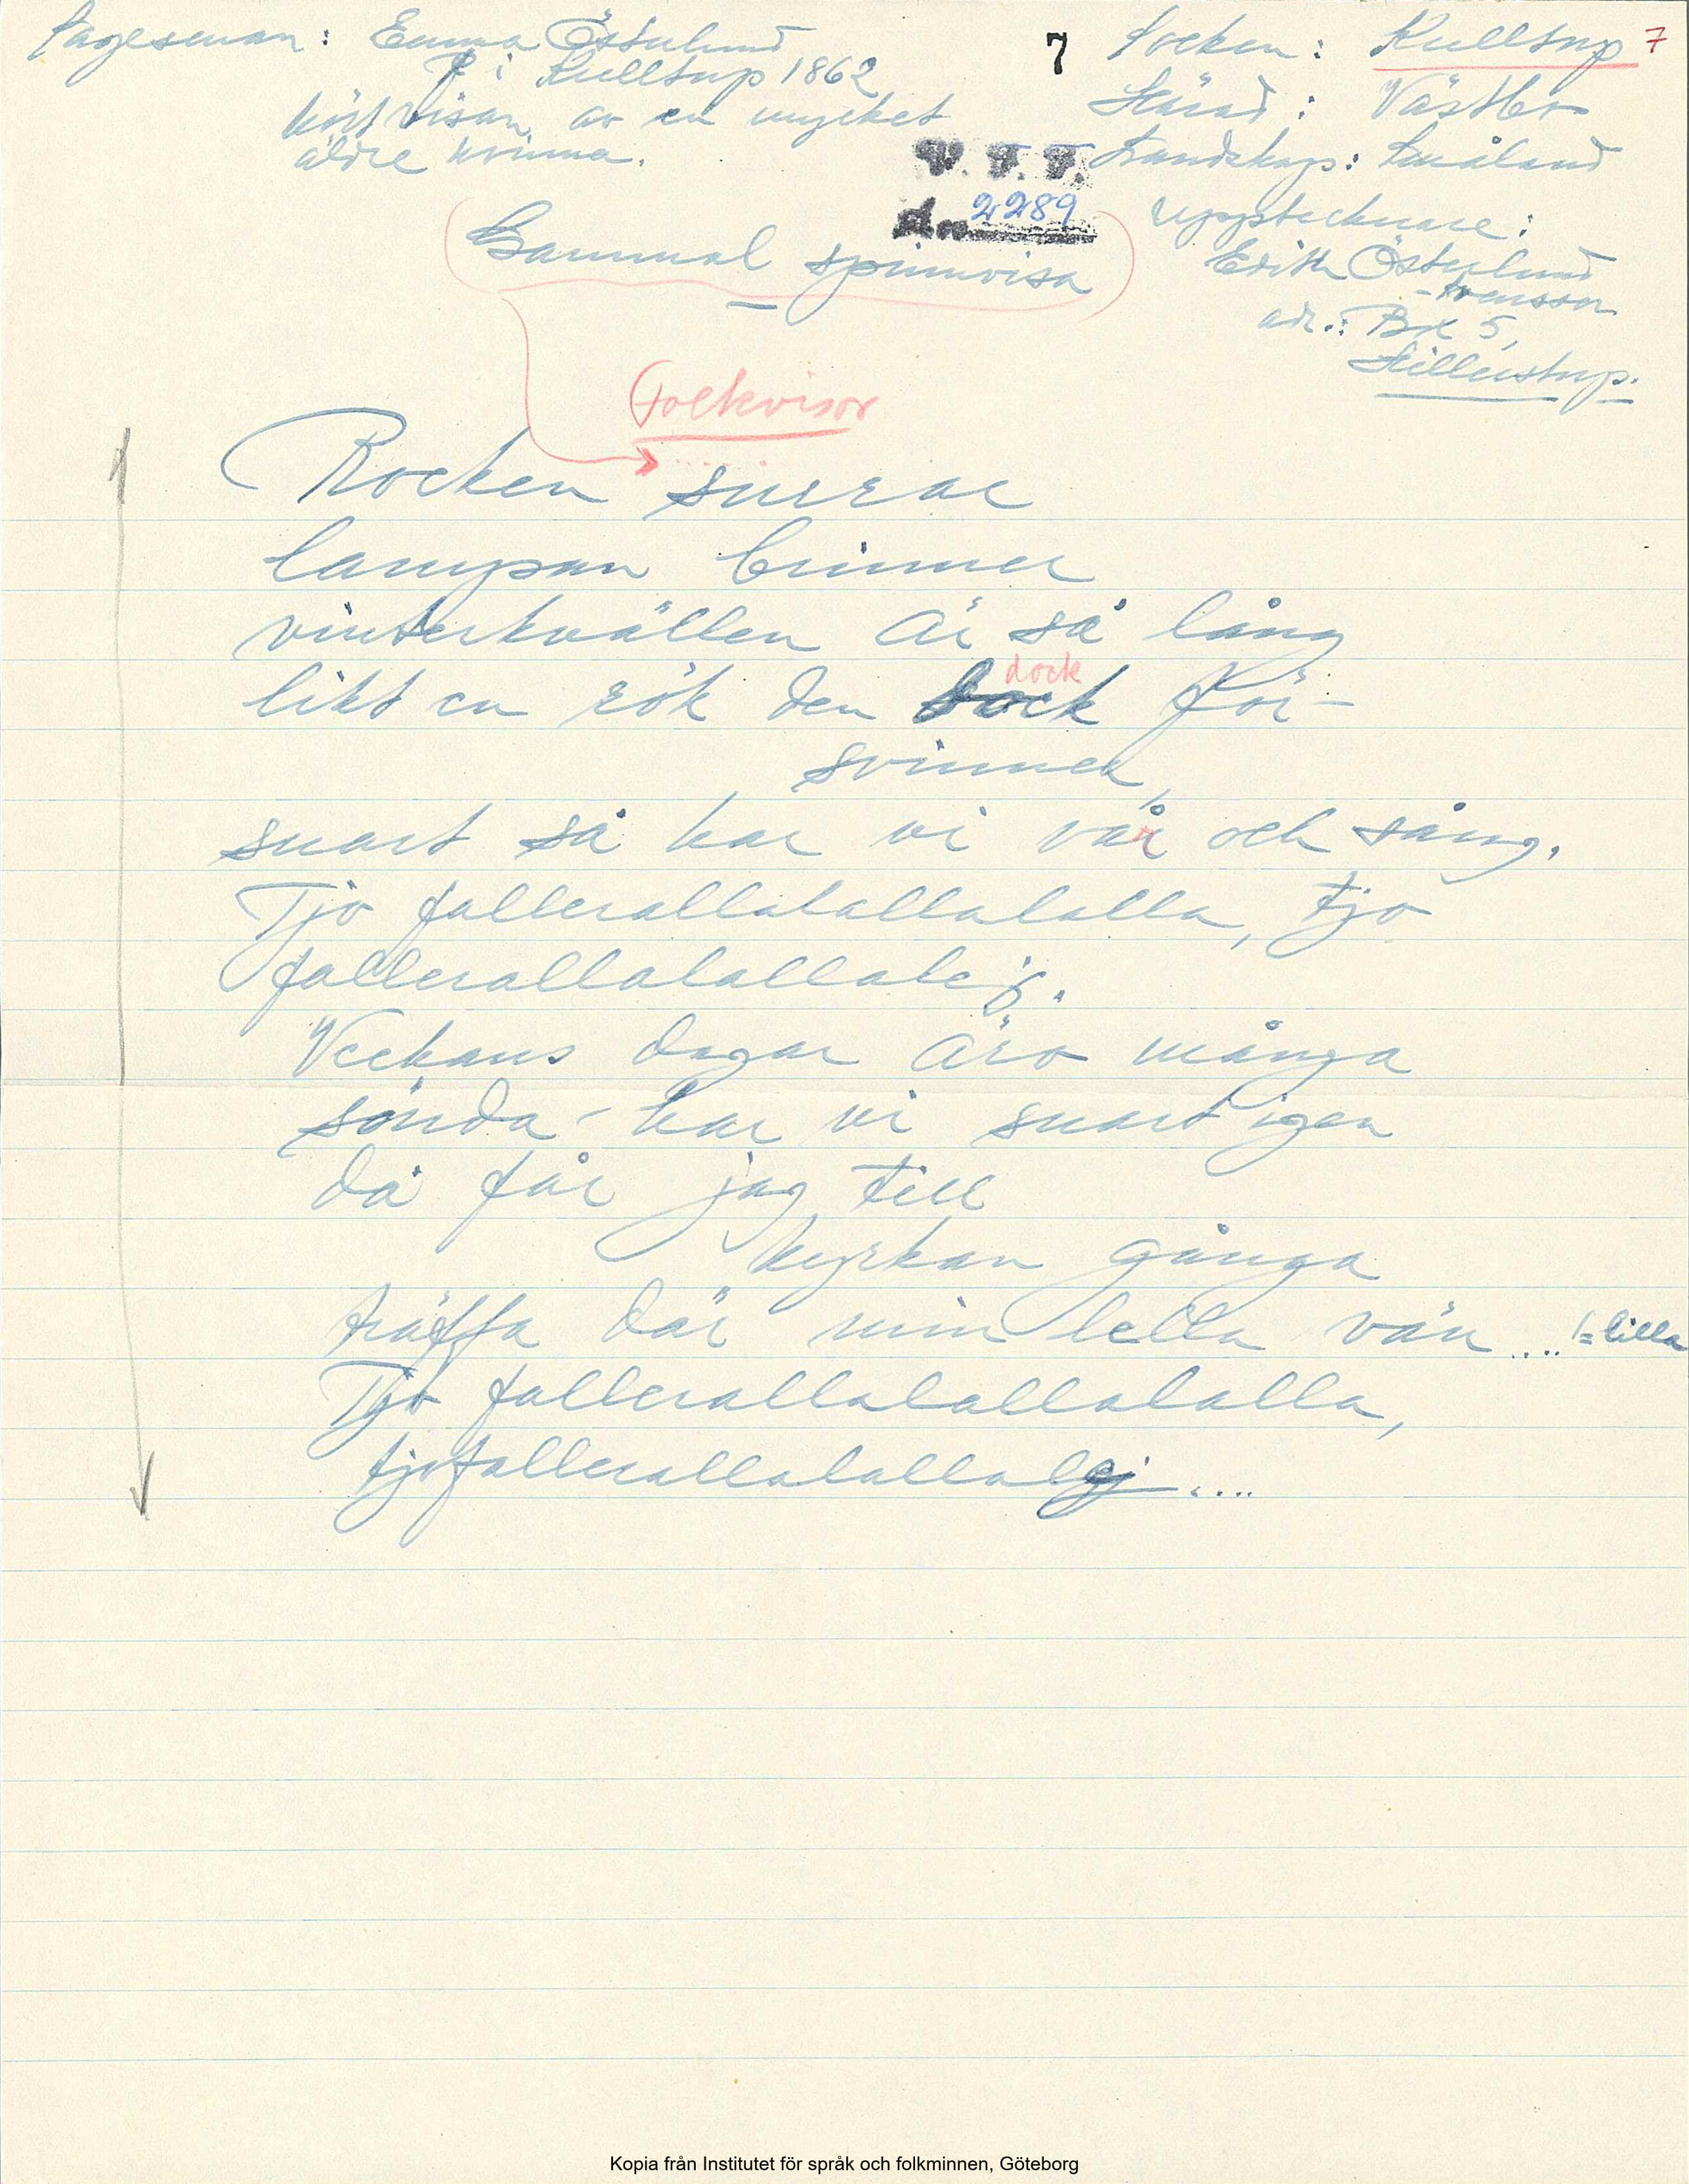 Sagesman: Emma Österlund
f. i Kulltorp 1862
hört visan av en mycket
äldre kvinna.
7
Socken: Kulltorp 7
Härad: Västbo
Landskap: Småland
Upptecknare:
Edith Österlund
-Svensson
adr.: Box 5,
Hillerstorp.
V. F. F.
2289
Gammal spinnvisa
Folkvisor
Rocken surrar
lampan brinner
vinterkvällen är så lång
likt en rök den dock för-
dock
svinner,
snart så har vi vår och sång.
Tjo fallerallalallalalla, tjo
fallerallalallalej.
Veckans dagar äro många
sönda- har vi snart igen
då får jag till
kyrkan gånga
träffa där min lella vän .... (= lilla
Tjo fallerallalallalalla,
tjofallerallalallalej ....
Kopia från Institutet för språk och folkminnen, Göteborg